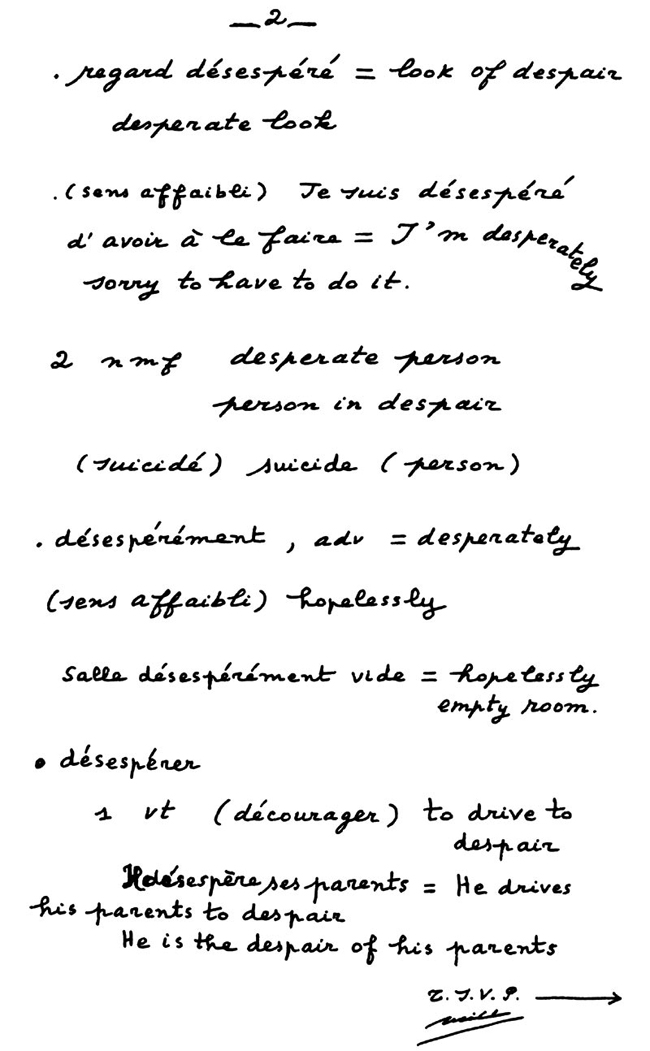 — 2 —
. regard désespéré = look of despair
desperate look
. (sens affaibli) Je suis désespéré
d'avoir à le faire = I'm desperately
sorry to have to do it.
2 nmf desperate person
person in despair
(suicidé) suicide (person)
. désespérément, adv = desperately
(sens affaibli) hopelessly
Salle désespérément vide = hopelessly
empty room.
• désespérer
1 vt (décourager) to drive to
despair
Il désespère ses parents = He drives
his parents to despair
He is the despair of his parents
T.S.V.P. ⟶